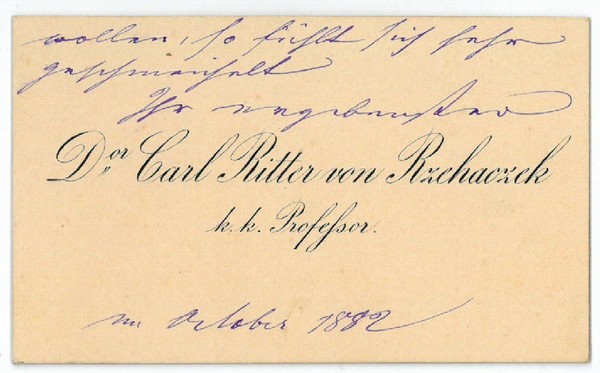 wollen, so fühlt sich sehr
geschmeichelt
Ihr ergebenster
Dor Carl Ritter von Rzehaczek
k. k. Professor.
im October 1882